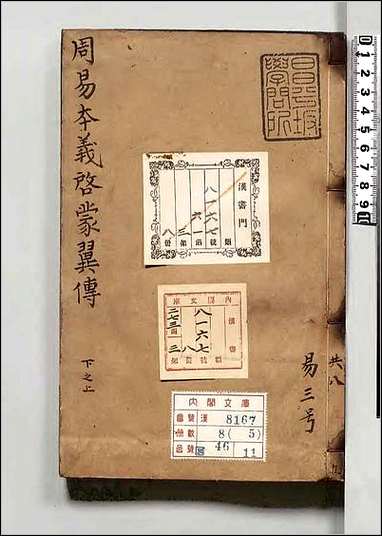 周易本義啓蒙翼傳
下之上
昌平坂
學問所
漢書門
八一六七
六一
三
八
類
號
函
架
冊
內閣文庫
漢書
八一六七
八
二七三
三
易三号
共八
內閣文庫
番號 漢 8167
冊數 8 ( 5 )
函號
46
11
0 1 2 3 4 5 6 7 8 9 10